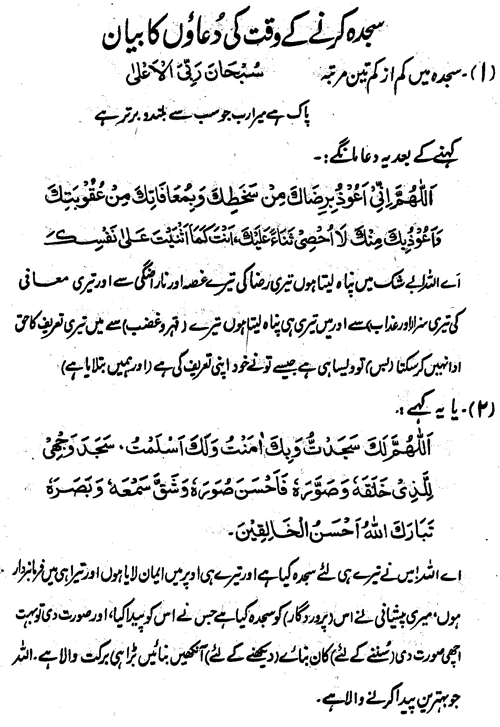 سجدہ کرنے کے وقت کی دُعاؤں کا بیان
(۱)۔ سجدہ میں کم از کم تین مرتبہ سُبْحَانَ رَبِّیَ الْاَعْلٰی
پاک ہے میرا رب جو سب سے بلند و برتر ہے
کہنے کے بعد یہ دعا مانگے :۔
اَللّٰهُمَّ اِنِّیْ اَعُوْذُ بِرِضَاكَ مِنْ سَخَطِكَ وَبِمُعَافَاتِكَ مِنْ عُقُوْبَتِكَ
وَاَعُوْذُ بِكَ مِنْكَ لَا اُحْصِیْ ثَنَاءً عَلَیْكَ، اَنْتَ كَمَا اَثْنَیْتَ عَلٰی نَفْسِكَ
اے اللہ! بے شک میں پناہ لیتا ہوں تیری رضا کی تیرے غصہ اور ناراضگی سے اور تیری معافی
کی تیری سزا (اور عذاب) سے اور میں تیری ہی پناہ لیتا ہوں تیرے (قہر و غضب) سے میں تیری تعریف کا حق
ادا نہیں کر سکتا (بس) تو ویسا ہی ہے جیسے تو نے خود اپنی تعریف کی ہے (اور ہمیں بتلایا ہے)
(۲)۔ یا یہ کہے :۔
اَللّٰهُمَّ لَكَ سَجَدْتُّ وَبِكَ اٰمَنْتُ وَلَكَ اَسْلَمْتُ، سَجَدَ وَجْهِیْ
لِلَّذِیْ خَلَقَهٗ وَصَوَّرَهٗ فَاَحْسَنَ صُوَرَهٗ وَشَقَّ سَمْعَهٗ وَبَصَرَهٗ
تَبَارَكَ اللّٰهُ اَحْسَنُ الْخَالِقِیْنَ۔
اے اللہ! میں نے تیرے ہی لئے سجدہ کیا ہے اور تیرے ہی اوپر میں ایمان لایا ہوں اور تیرا ہی میں فرمانبردار
ہوں، میری پیشانی نے اس (پروردگار) کو سجدہ کیا ہے جس نے اس کو پیدا کیا، اور صورت دی تو بہت
اچھی صورت دی (سننے کے لئے) کان بنائے (دیکھنے کے لئے) آنکھیں بنائیں بڑا ہی برکت والا ہے۔ اللہ
جو بہترین پیدا کرنے والا ہے۔